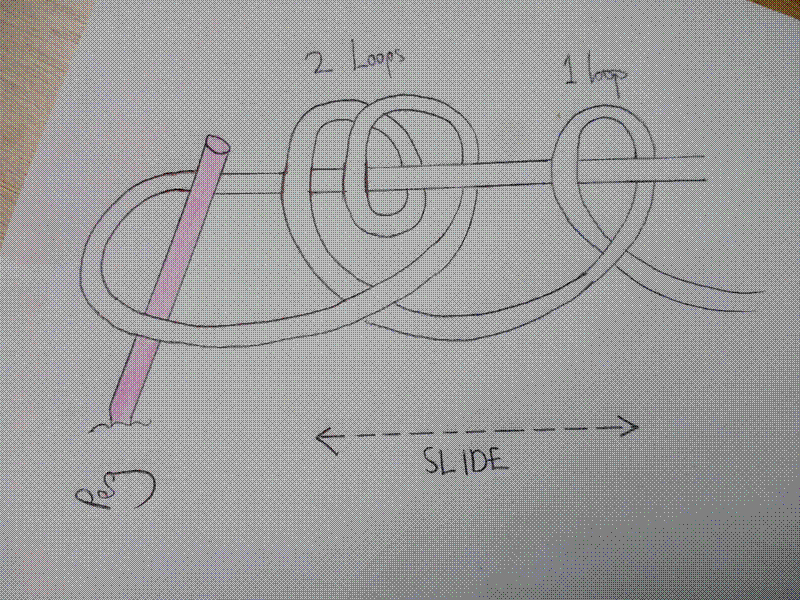 2 Loops
1 loop
SLIDE
Peg